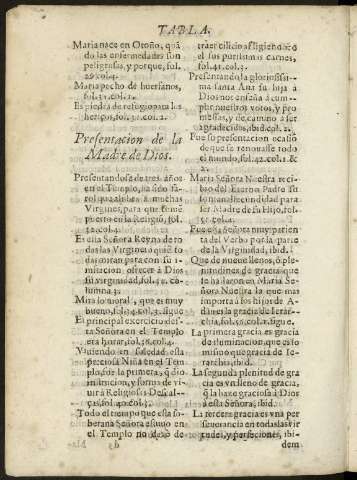 TABLA.
Maria nace en Otoño, quã
do las enfermedades son
peligrosas, y porque, fol.
29. col. 4.
Maria pecho de huerfanos,
fol. 31. col. 1.
Es piedra de refugio para los
heridos, fol. 31. col. 2.
Presentacion de la
Madre de Dios.
Presentandose de tres años
en el Templo, ha sido fa-
rol que alumbra à muchas
Virgines, para que tomẽ
puerto en la Religiõ, fol.
32. col. 4.
Es esta Señora Reyna de to
das las Virgines a quiẽ to
das miran para con su i-
mitacion ofrecer à Dios
su virginidad, fol. 33. co-
lumna 3.
Mira lo moral, que es muy
bueno, fol. 34. col. 3. sigue
El principal exercicio desta
Señora en el Templo
era horar, fol. 38. col. 4.
Viniendo en soledad esta
preciosa Niña en el Tem
plo, fue la primera, q̃ dio
institucion, y forma de vi-
uir à Religiosas Descal-
ças, fol. 40. col. 3.
Todo el tiempo que esta so-
berana Señora estuuo en
el Templo no dexò de
traer cilicio afligiendo cõ
el sus purissimas carnes,
fol. 41. col. 3.
Presentando la gloriosissi-
ma santa Ana su hija à
Dios nos enseña à cum-
plir nuestros votos, y pro
messas, y de camino à ser
agradecidos, ibid. col. 2.
Fue su presentacion ocasiõ
de que se renouasse todo
el mundo, fol. 42. col. 1. &
2.
Maria Señora Nuestra reci
bio del Eterno Padre su
fontanal fecundidad para
ser Madre de su Hijo, fol.
57. col. 4.
Fue esta Señora muy parien
ta del Verbo por la parte
de la Virginidad, ibid. 1
Que de nueue llenos, ò ple-
nitudines de gracia que
se hallaron en Maria Se-
ñora Nuestra la que mas
importa à los hijos de A-
dã es la gracia de Ierar-
chia, fol. 58. col. 1. sigue.
A la primera gracia es gracia
de iluminacion, que es lo
mismo que gracia de Ie-
rarchia, ibid.
La segunda plenitud de gra
cia es vn lleno de gracia,
q̃ la haze graciosa à Dios
à esta Señora, ibid.
La tercera gracia es vna per
seuerancia en todas las vir
tudes, y perfeciones, ibi-
dem